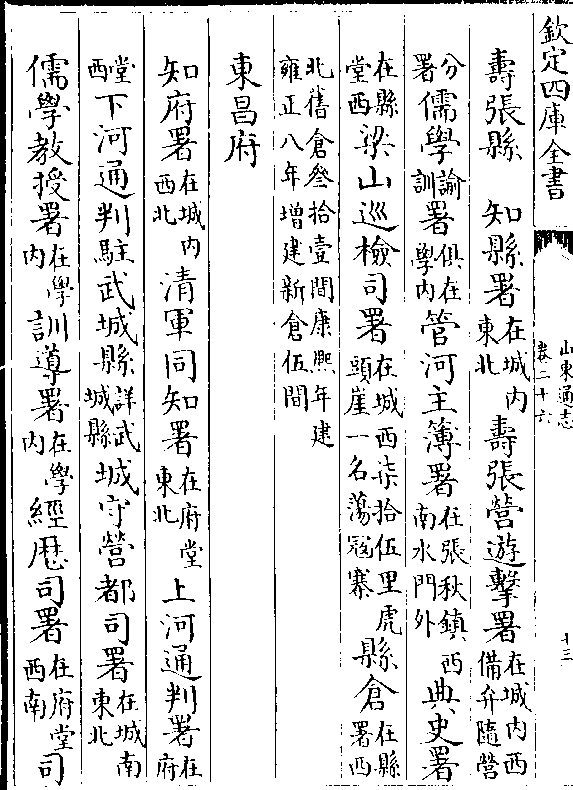 欽定四庫全書
山東通志
卷二十六
十三
壽張縣 知縣署在城内東北壽張營遊擊署在城内西備弁隨營
分署儒學諭訓署俱在學内管河主簿署在張秋鎮西南水門外典史署
在縣堂西梁山巡檢司署在城西柒拾伍里虎頭崖一名蕩寇寨縣倉在縣署西
北舊倉叁拾壹間康熙年建雍正八年增建新倉伍間
東昌府
知府署在城内西北清軍同知署在府堂東北上河通判署在府
堂西下河通判駐武城縣詳武城縣城守營都司署在城南東北
儒學教授署在學内訓導署在學内經歴司署在府堂西南司